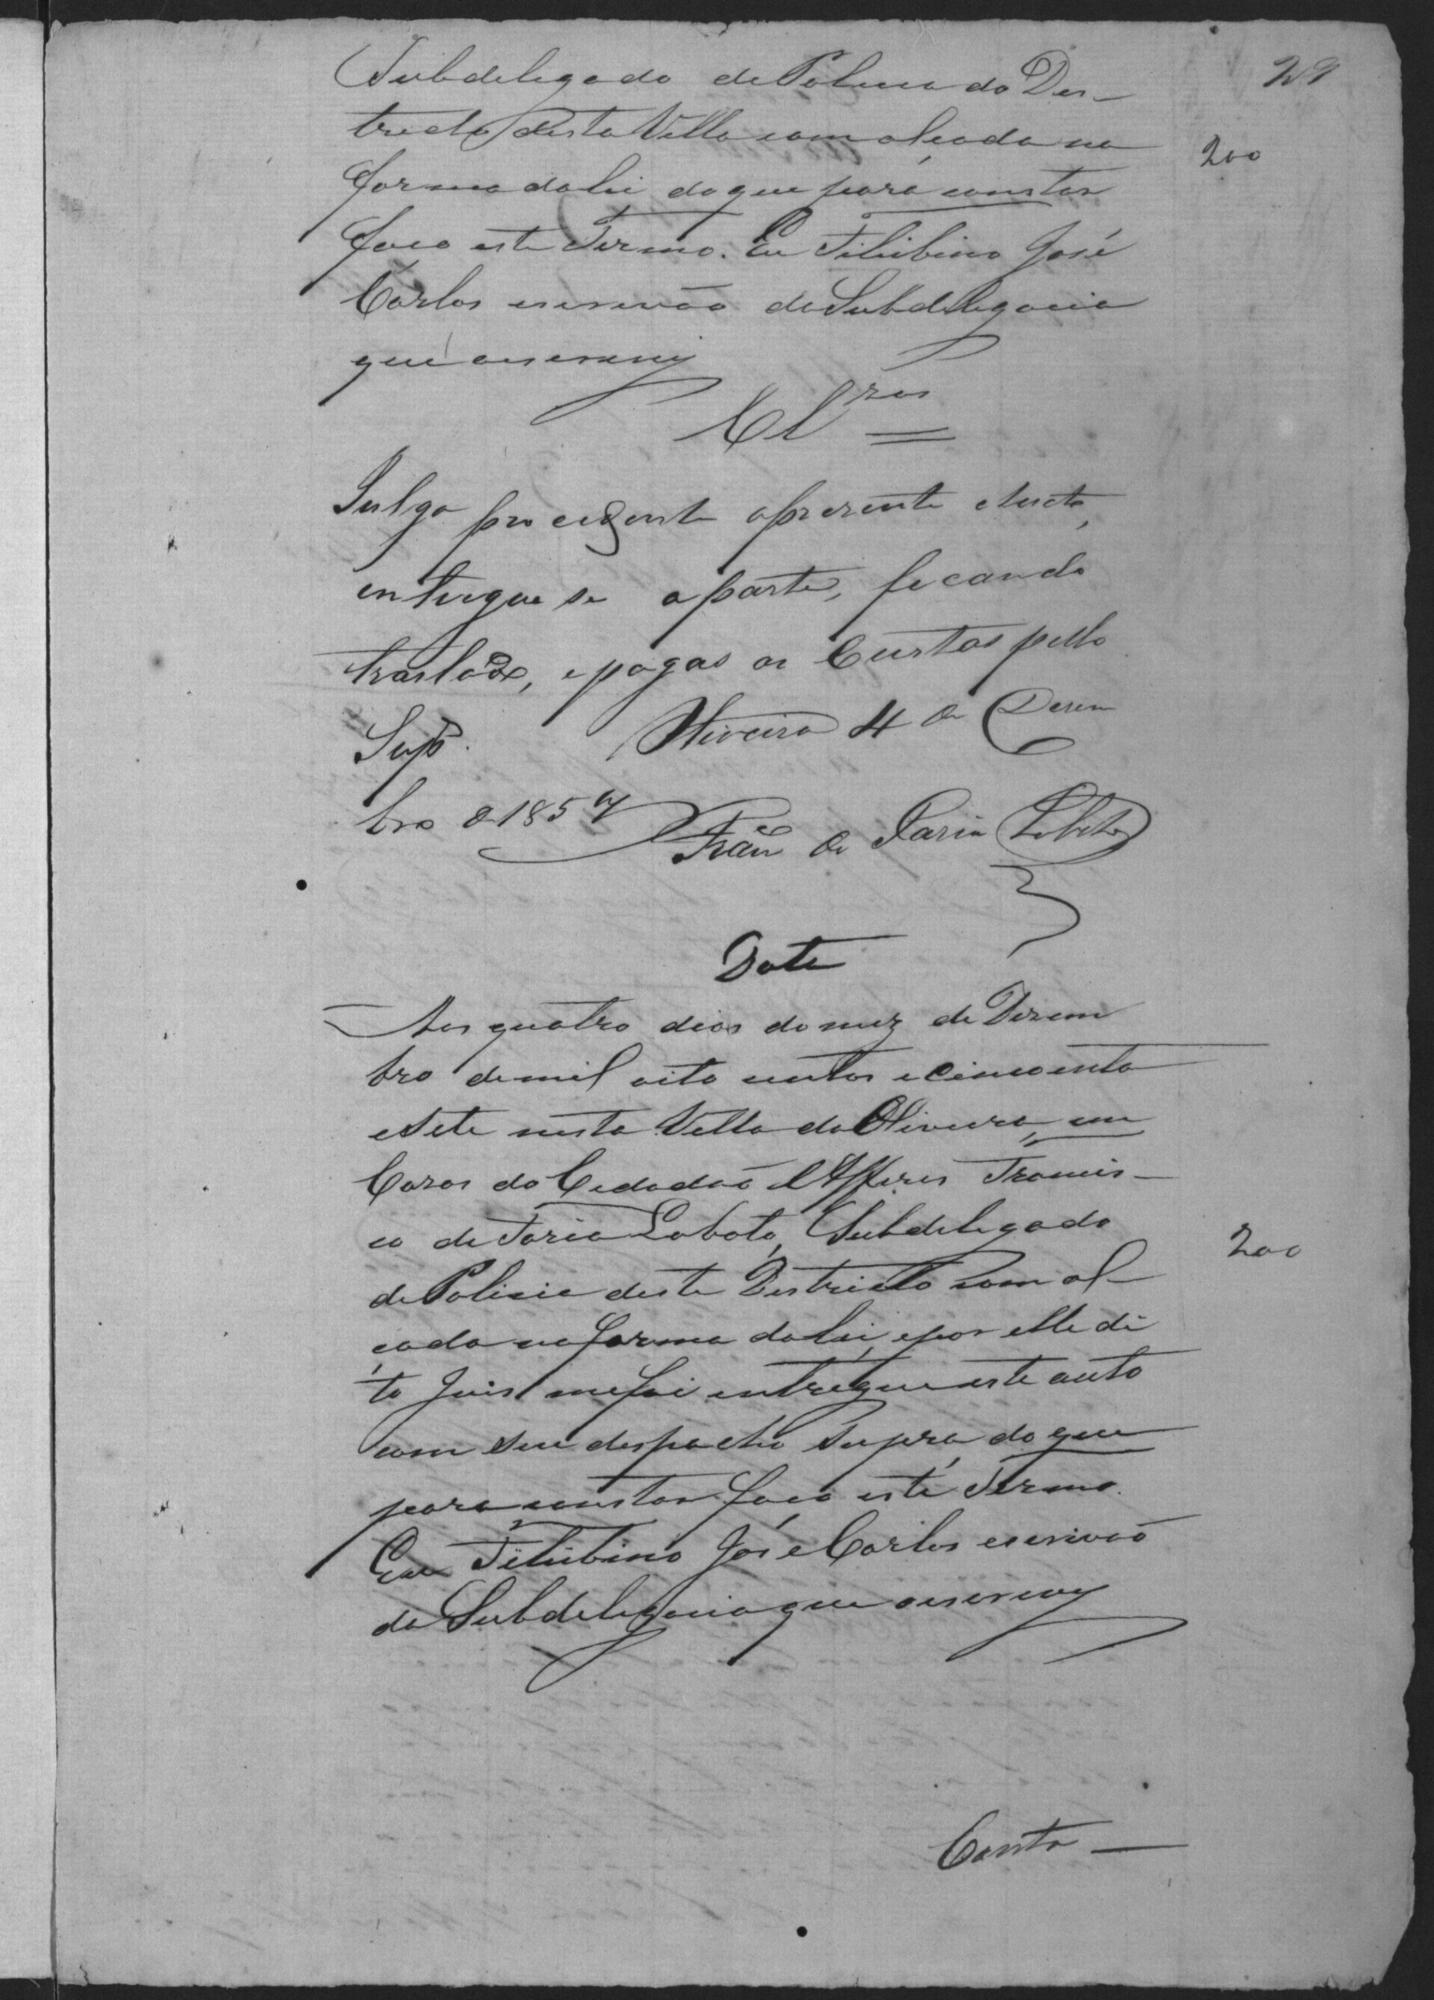 29
Subdelegado de Policia do Des-
tricto desta Villa com alçada na
200
forma da Lei do que para constar
faço este Termo. Eu Felisbino José
Carlos escrivão da Subdelegacia
que o escrevy
Cl.ros
Julgo procedente o presente Aucto,
entregue se a parte, ficando
traslado, e pagas as Custas pello
Supe. Oliveira 4 de Desem
bro de 1857
Franco de Faria Lobato
Data
Aos quatro dias do mez de Dezem
bro de mil oito centos e cincoenta
e Sete nesta Villa da Oliveira, em
Cazas do Cidadão Alferes Francis-
co de Faria Lobato, Subdelegado
200
de Policia deste Destricto com al-
çada na forma da Lei, e por elle di
to Juis me foi entregue este auto
com seu despacho supra, do que
para constar faço este Termo.
Eu Felisbino José Carlos escrivão
da Subdelegacia que o escrevy
Conta